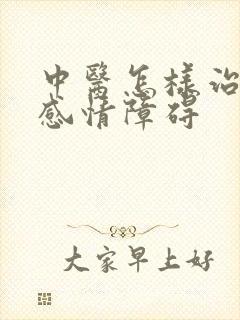 中醫怎樣治
感情障碍
大家早上好